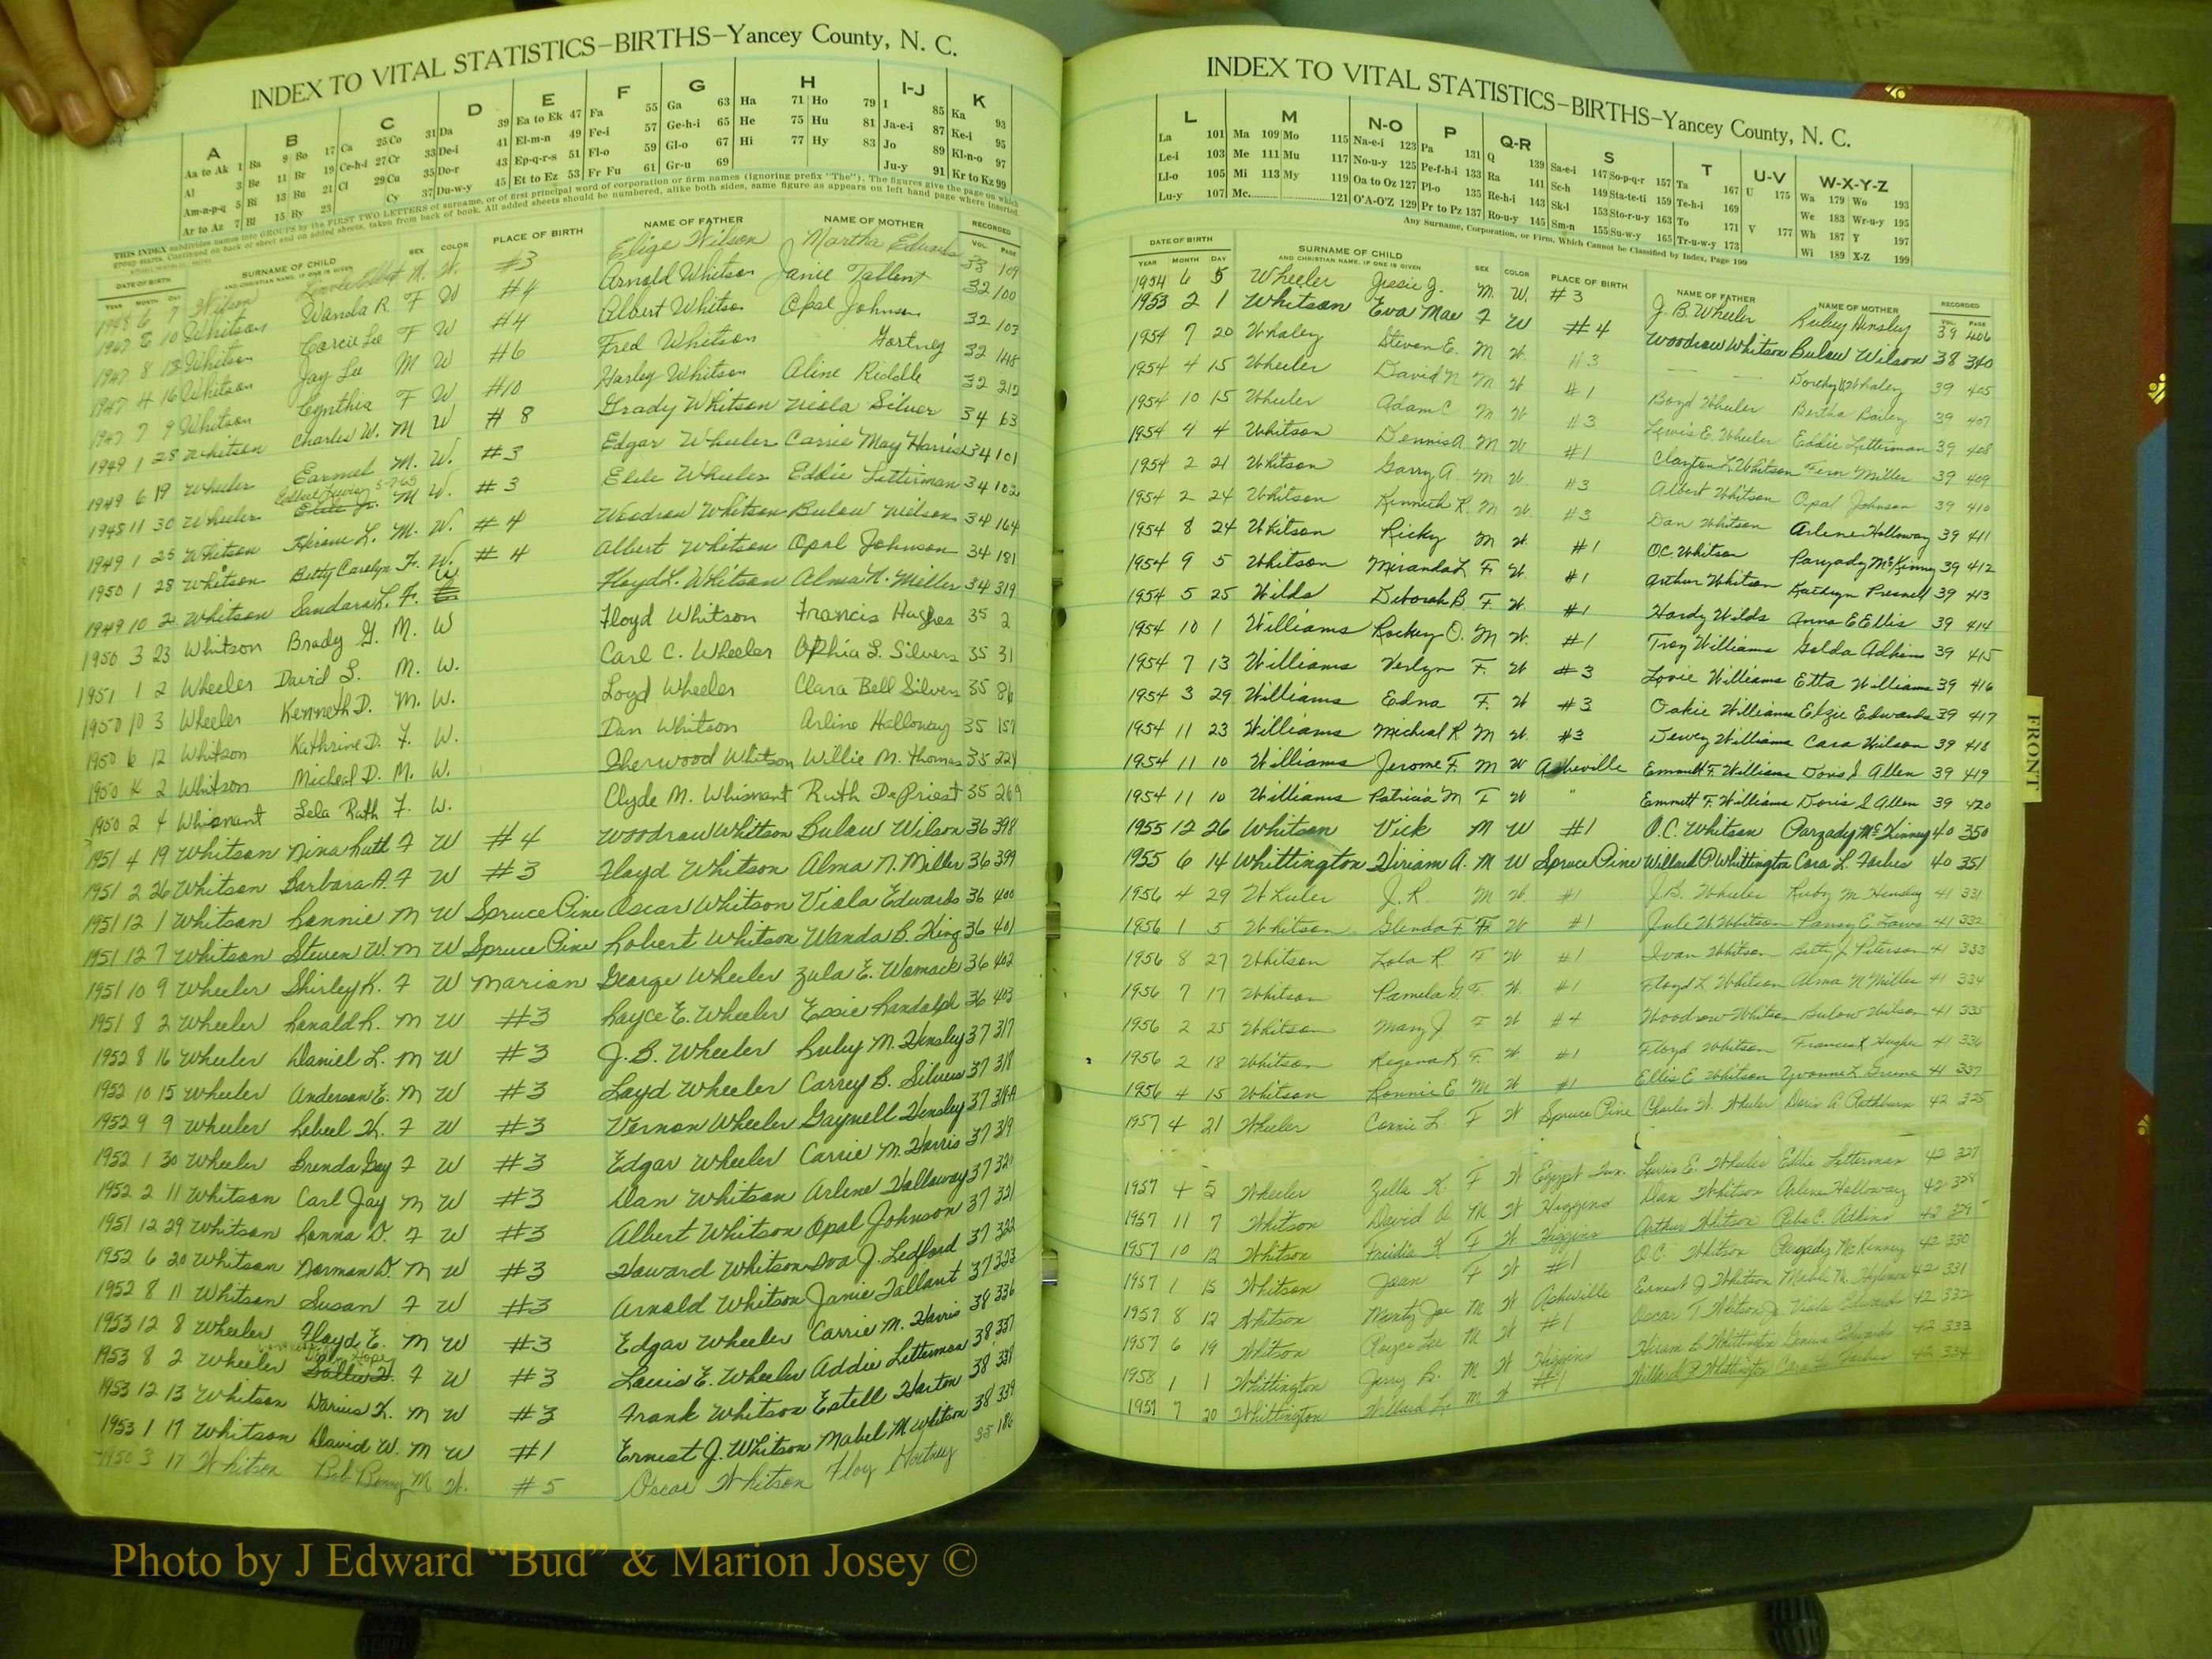 INDEX TO VITAL STATISTICS–BIRTHS–Yancey County, N. C.
A B C D E F G H I-J K
Aa to Ak 1 Ba 9 Bo 17 Ca 25 Co 31 Da 39 Ea to Ek 47 Fa 55 Ga 63 Ha 71 Ho 79 I 85 Ka 93
Al 3 Be 11 Br 19 Ce-h-i 27 Cr 33 De-i 41 El-m-n 49 Fe-i 57 Ge-h-i 65 He 75 Hu 81 Ja-e-i 87 Ke-i 95
Am-n-p-q 5 Bi 13 Bu 21 Cl 29 Cu 35 Do-r 43 Ep-q-r-s 51 Fl-o 59 Gl-o 67 Hi 77 Hy 83 Jo 89 Kl-n-o 97
Ar to Az 7 Bl 15 By 23 Cy 37 Du-w-y 45 Et to Ez 53 Fr Fu 61 Gr-u 69 Ju-y 91 Kr to Kz 99
THIS INDEX subdivides names into GROUPS by the FIRST TWO LETTERS of surname, or of first principal word of corporation or firm names (ignoring prefix "The"). The figures give the page on which
group starts. Continued on back of sheet and on added sheets, taken from back of book. All added sheets should be numbered, alike both sides, same figure as appears on left hand page where inserted.
DATE OF BIRTH SURNAME OF CHILD SEX COLOR PLACE OF BIRTH NAME OF FATHER NAME OF MOTHER RECORDED
YEAR MONTH DAY AND CHRISTIAN NAME, IF ONE IS GIVEN VOL. PAGE
1948 6 7 Wilson M. W. #3 Elige Wilson Martha Edwards 33 109
1947 10 Whitson Wanda R. F W #4 Arnold Whitson Janie Tallent 32 100
1947 8 13 Whitson Corcie Lee F W #4 Albert Whitson Opal Johnson 32 103
1947 4 16 Whitson Jay Lee M W #6 Fred Whitson Gortney 32 148
1947 7 9 Whitson Cynthia F W #10 Harley Whitson Aline Riddle 32 212
1949 1 28 Whitson Charles W. M W #8 Grady Whitson Viola Silver 34 63
1949 6 19 Wheeler Earmel M. W. #3 Edgar Wheeler Carrie May Harris 34 101
1948 11 30 Wheeler M W. #3 Elzie Wheeler Eddie Letterman 34 102
1949 1 25 Whitson Hiram L. M. W. #4 Woodrow Whitson Bulow Wilson 34 164
1950 1 28 Whitson Betty Carolyn F. W. #4 Albert Whitson Opal Johnson 34 181
1949 10 2 Whitson Sandara L. F. W Floyd L. Whitson Alma N. Miller 34 319
1950 3 23 Whitson Brady G. M. W Floyd Whitson Francis Hughes 35 2
1951 1 2 Wheeler David L. M. W. Carl C. Wheeler Ophia L. Silvers 35 31
1950 10 3 Wheeler Kenneth D. M. W. Loyd Wheeler Clara Bell Silvers 35 86
1950 6 12 Whitson Kathrine D. F. W. Dan Whitson Arline Halloway 35 157
1950 2 Whitson Micheal D. M. W. Sherwood Whitson Willie M. Thomas 35 224
1950 2 4 Whisnant Lela Ruth F. W. Clyde M. Whisnant Ruth DePriest 35 269
1951 4 19 Whitson Nina Ruth F W #4 Woodrow Whitson Bulow Wilson 36 398
1951 2 26 Whitson Barbara A. F W #3 Floyd Whitson Alma N. Miller 36 399
1951 12 1 Whitson Ronnie M W Spruce Pine Oscar Whitson Viola Edwards 36 400
1951 12 7 Whitson Steven W. M W Spruce Pine Robert Whitson Wanda B. King 36 401
1951 10 9 Wheeler Shirley K. F W Marion George Wheeler Zula E. Womack 36 402
1951 8 2 Wheeler Ronald R. M W #3 Royce E. Wheeler Essie Randolph 36 403
1952 8 16 Wheeler Daniel L. M W #3 J. B. Wheeler Ruby M. Hensley 37 317
1952 10 15 Wheeler Anderson E. M W #3 Loyd Wheeler Carrey B. Silvers 37 318
1952 9 9 Wheeler K. F W #3 Vernon Wheeler Gaynell Hensley 37 318A
1952 1 30 Wheeler Brenda Gay F W #3 Edgar Wheeler Carrie M. Harris 37 319
1952 2 11 Whitson Carl Jay M W #3 Dan Whitson Arlene Halloway 37 320
1951 12 29 Whitson Ronna D. F W #3 Albert Whitson Opal Johnson 37 321
1952 6 20 Whitson Norman D. M W #3 Howard Whitson Iva J. Ledford 37 322
1952 8 11 Whitson Susan F W #3 Arnold Whitson Janie Tallant 37 323
1953 12 8 Wheeler Floyd E. M W #3 Edgar Wheeler Carrie M. Harris 38 336
1953 8 2 Wheeler Hope F W #3 Lewis E. Wheeler Addie Letterman 38 337
1953 12 13 Whitson Darius K. M W #3 Frank Whitson Estell Horton 38 338
1953 1 17 Whitson David W. M W #1 Ernest J. Whitson Mabel M. Whitson 38 339
1950 3 17 Whitson Bob Benny M W. #5 Oscar Whitson Floy 35 186
INDEX TO VITAL STATISTICS–BIRTHS–Yancey County, N. C.
L M N-O P Q-R S T U-V W-X-Y-Z
La 101 Ma 109 Mo 115 Na-e-i 123 Pa 131 Q 139 Sa-e-i 147 So-p-q-r 157 Ta 167 U 175 Wa 179 Wo 193
Le-i 103 Me 111 Mu 117 No-u-y 125 Pe-f-h-i 133 Ra 141 Sc-h 149 Sta-te-ti 159 Te-h-i 169 We 183 Wr-u-y 195
Ll-o 105 Mi 113 My 119 Oa to Oz 127 Pl-o 135 Re-h-i 143 Sk-l 153 Sto-r-u-y 163 To 171 V 177 Wh 187 Y 197
Lu-y 107 Mc 121 O'A-O'Z 129 Pr to Pz 137 Ro-u-y 145 Sm-n 155 Su-w-y 165 Tr-u-w-y 173 Wi 189 X-Z 199
Any Surname, Corporation, or Firm, Which Cannot be Classified by Index, Page 199
DATE OF BIRTH SURNAME OF CHILD SEX COLOR PLACE OF BIRTH NAME OF FATHER NAME OF MOTHER RECORDED
YEAR MONTH DAY AND CHRISTIAN NAME, IF ONE IS GIVEN VOL. PAGE
1954 6 5 Wheeler Jessie J. M. W. #3 J. B. Wheeler Rubey Hensley 39 406
1953 2 1 Whitson Eva Mae F W #4 Woodrow Whitson Bulow Wilson 38 340
1954 7 20 Whaley Steven E. M W. #3 Dorothy Whaley 39 405
1954 4 15 Wheeler David N M W #1 Boyd Wheeler Bertha Bailey 39 407
1954 10 15 Wheeler Adam C M W. #3 Lewis E. Wheeler Eddie Letterman 39 408
1954 4 4 Whitson Dennis A M W #1 Clayton L. Whitson Fern Miller 39 409
1954 2 21 Whitson Garry A. M W. #3 Albert Whitson Opal Johnson 39 410
1954 2 24 Whitson Kenneth R. M W. #3 Dan Whitson Arlene Holloway 39 411
1954 8 24 Whitson Ricky M W. #1 O.C. Whitson Pargady McKinney 39 412
1954 9 5 Whitson Miranda L F. W. #1 Arthur Whitson Kathryn Presnell 39 413
1954 5 25 Wilds Deborah B F. W. #1 Hardy Wilds Anna E Ellis 39 414
1954 10 1 Williams Rockey O. M W. #1 Troy Williams Golda Adkins 39 415
1954 7 13 Williams Verlyn F. W #3 Lovie Williams Etta Williams 39 416
1954 3 29 Williams Edna F. W #3 Oakie Williams Elzie Edwards 39 417
1954 11 23 Williams Micheal R M W. #3 Dewey Williams Cara Wilson 39 418
1954 11 10 Williams Jerome F. M W Asheville Emmett F. Williams Doris S Allen 39 419
1954 11 10 Williams Patricia M F W " Emmett F. Williams Doris S Allen 39 420
1955 12 26 Whitson Vick M W #1 O.C. Whitson Parzady McKinney 40 350
1955 6 14 Whittington Hiriam A. M W Spruce Pine Willard P. Whittington Cora L. Forbes 40 351
1956 4 29 Wheeler J. R. M W. #1 J.B. Wheeler Ruby M. Hensley 41 331
1956 1 5 Whitson Glenda F. F. W #1 Jule W Whitson Pansy E. Laws 41 332
1956 8 27 Whitson Lola R. F W #1 Ivan Whitson Betty J. Peterson 41 333
1956 7 17 Whitson Pamela G. F. W. #1 Floyd L Whitson Alma N Miller 41 334
1956 2 25 Whitson Mary J. F W #4 Woodrow Whitson Bulow Wilson 41 335
1956 2 18 Whitson Regena K. F. W. #1 Floyd Whitson Frances Hughes 41 336
1956 4 15 Whitson Ronnie E. M W #1 Ellis E Whitson Yvonne L. Greene 41 337
1957 4 21 Wheeler Connie L. F W Spruce Pine Charles W. Wheeler Doris A. Rathburn 42 325
1957 4 5 Wheeler Zella K. F W Egypt Twn. Lewis E. Wheeler Eddie Letterman 42 327
1957 11 7 Whitson David A. M W Higgins Dan Whitson Arlene Holloway 42 328
1957 10 12 Whitson Freidia K F W Higgins Arthur Whitson Reba C. Adkins 42 329
1957 1 15 Whitson Joan F W #1 O.C. Whitson Pargady McKinney 42 330
1957 8 12 Whitson Monty Joe M W Asheville Ernest J. Whitson Mable M. 42 331
1957 6 19 Whitson Roger Lee M W #1 Oscar T Whitson Jr Viola Edwards 42 332
1958 1 1 Whittington Jerry B. M W Higgins Hiram B Whittington Geneva Edwards 42 333
1957 7 20 Whittington Willard L. M W #1 Willard P. Whittington Cora L. Forbes 42 334
FRONT
Photo by J Edward “Bud” & Marion Josey ©